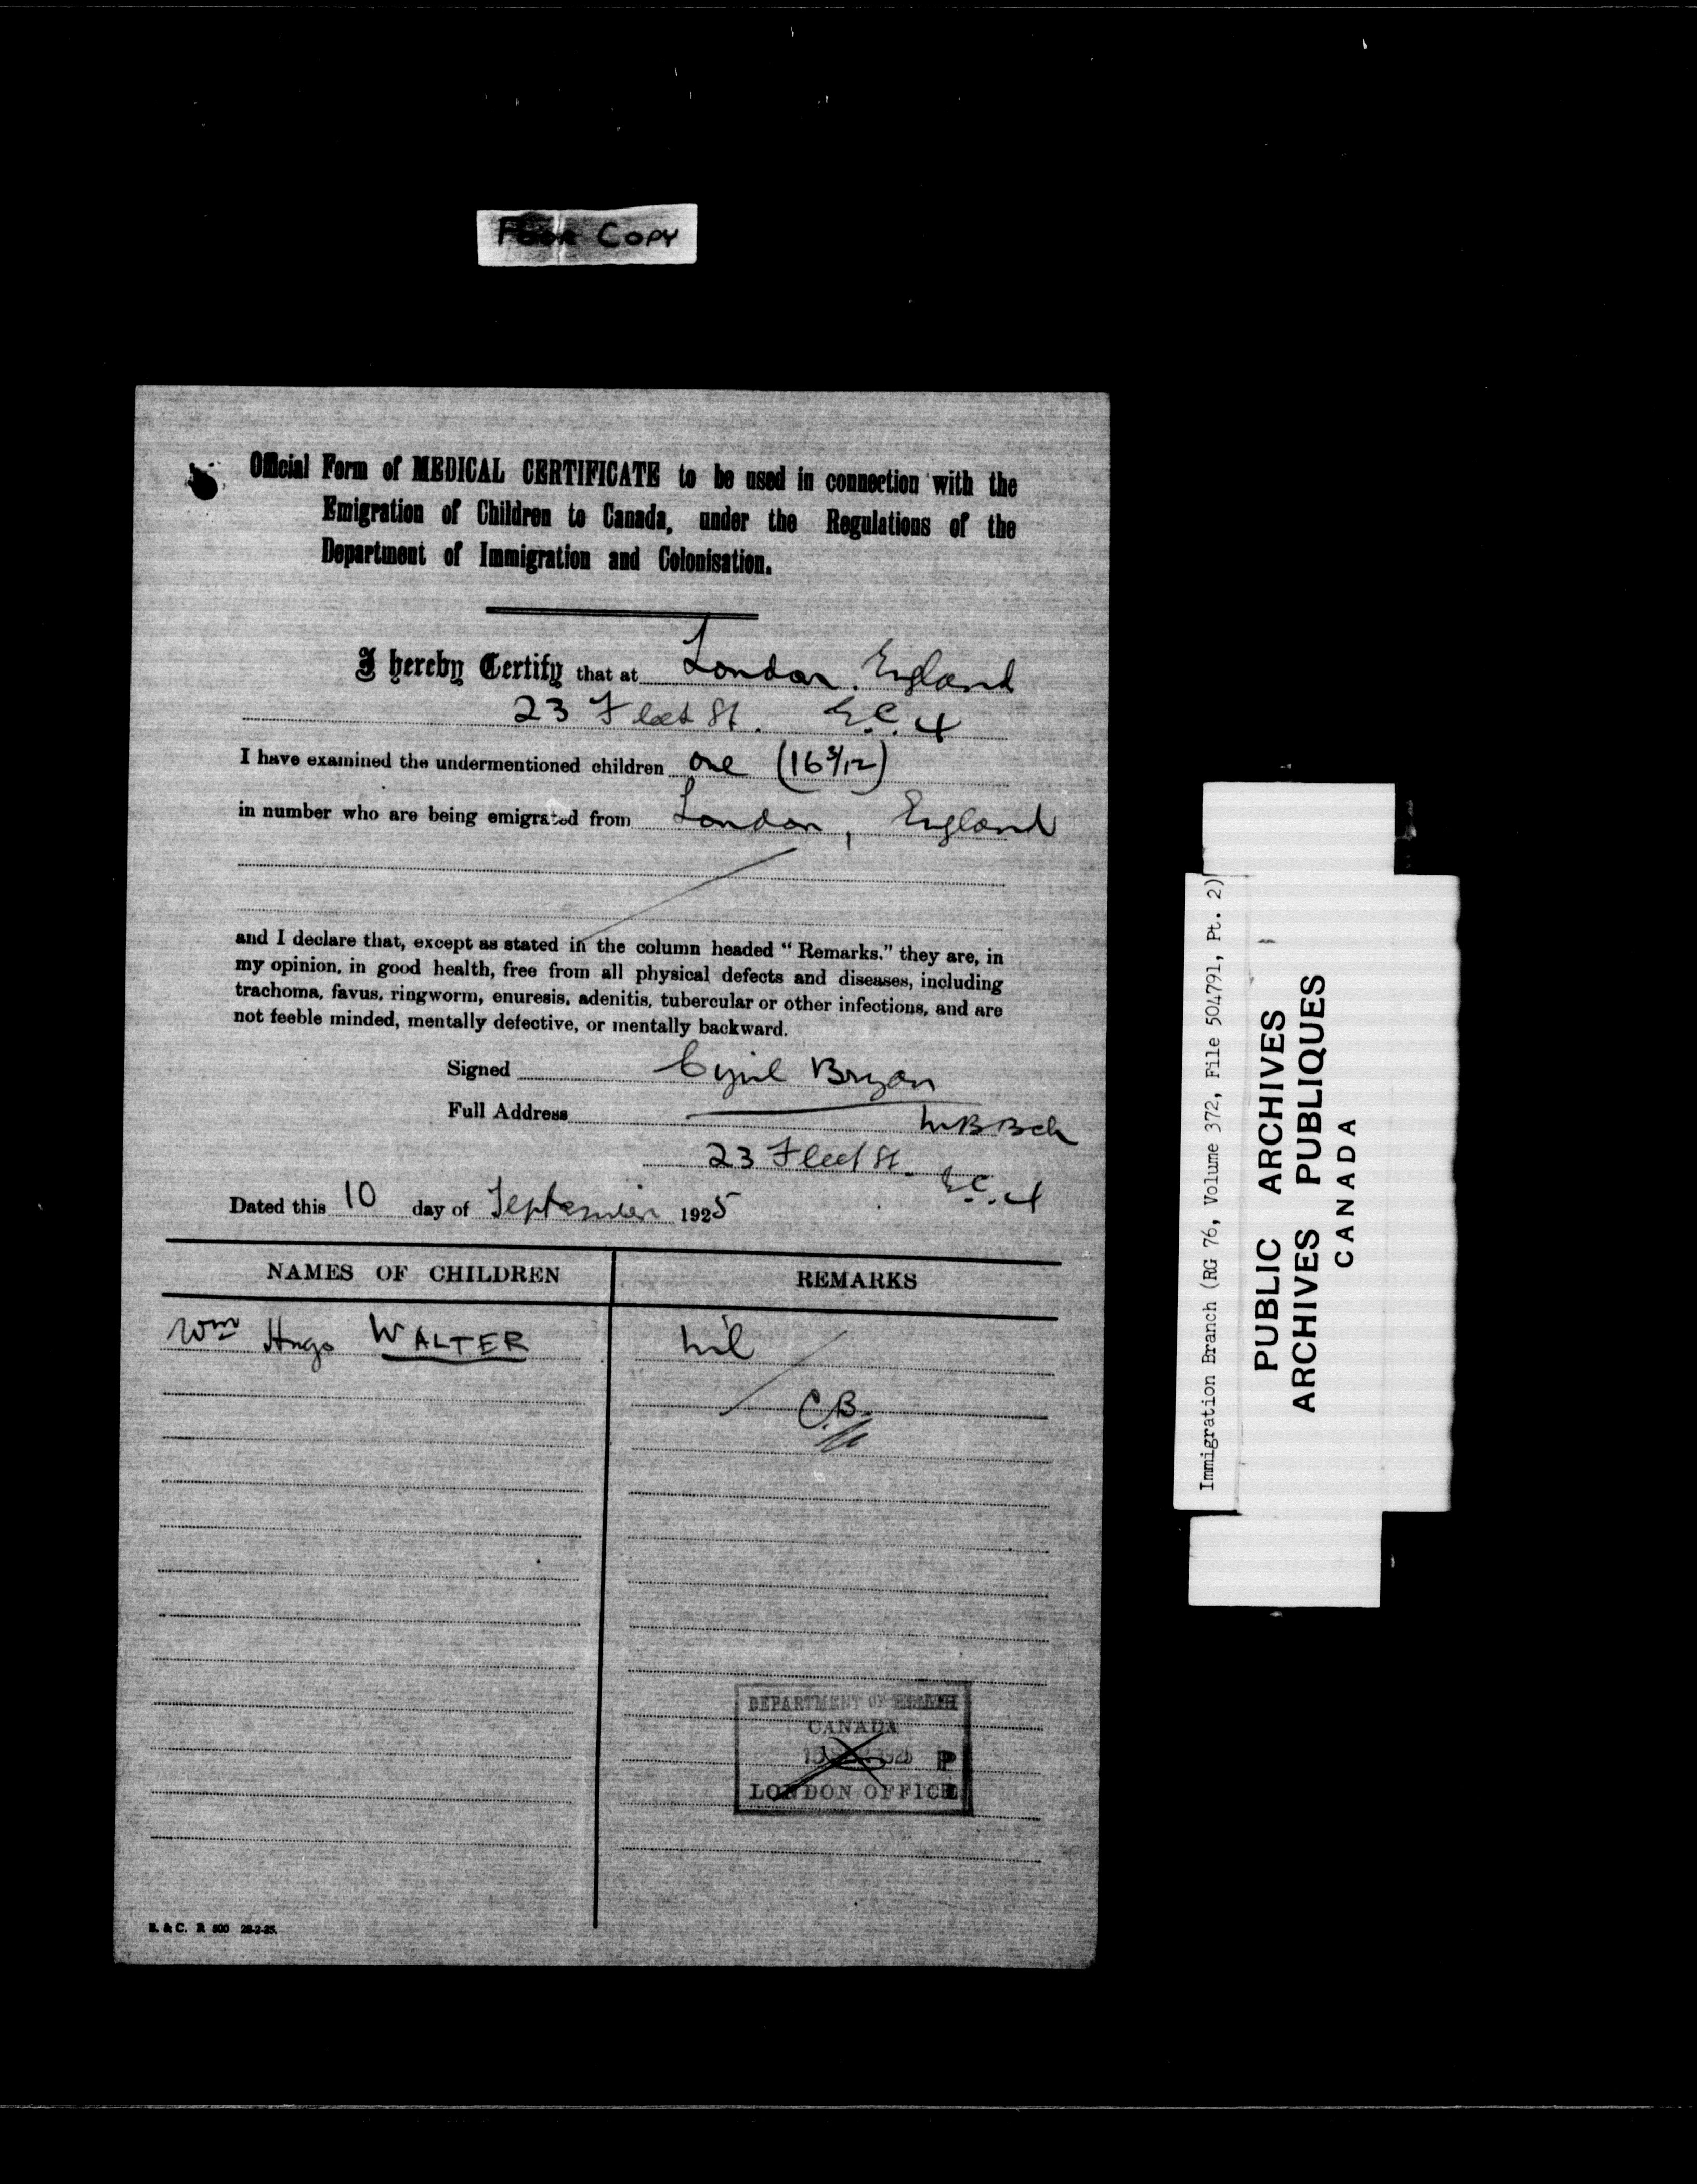 Poor Copy
Official Form of MEDICAL CERTIFICATE to be used in connection with the
Emigration of Children to Canada, under the Regulations of the
Department of Immigration and Colonisation.
I hereby Certify that at London. England
23 Fleet St. E.C. 4
I have examined the undermentioned children one (16 3/12)
in number who are being emigrated from London, England
and I declare that, except as stated in the column headed “Remarks.” they are, in
my opinion, in good health, free from all physical defects and diseases, including
trachoma, favus, ringworm, enuresis, adenitis, tubercular or other infections, and are
not feeble minded, mentally defective, or mentally backward.
Signed Cyril Bryan
Full Address M.B. Bch
23 Fleet St. E.C. 4
Dated this 10 day of September 1925
NAMES OF CHILDREN REMARKS
Wm Hugo WALTER nil
C.B.
DEPARTMENT OF HEALTH
CANADA
P
LONDON OFFICE
B. & C. R 800 28-2-25.
Immigration Branch (RG 76, Volume 372, File 504791, Pt. 2)
PUBLIC ARCHIVES
ARCHIVES PUBLIQUES
CANADA